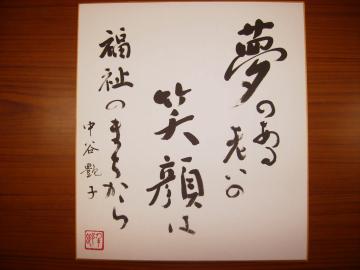 夢のある
老いの
笑顔は
福祉のまちから
中谷艶子